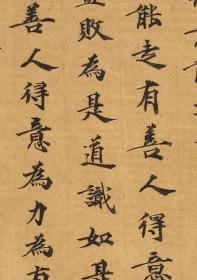 能走有善人得意
敗為是道識如是
善人得意為力為